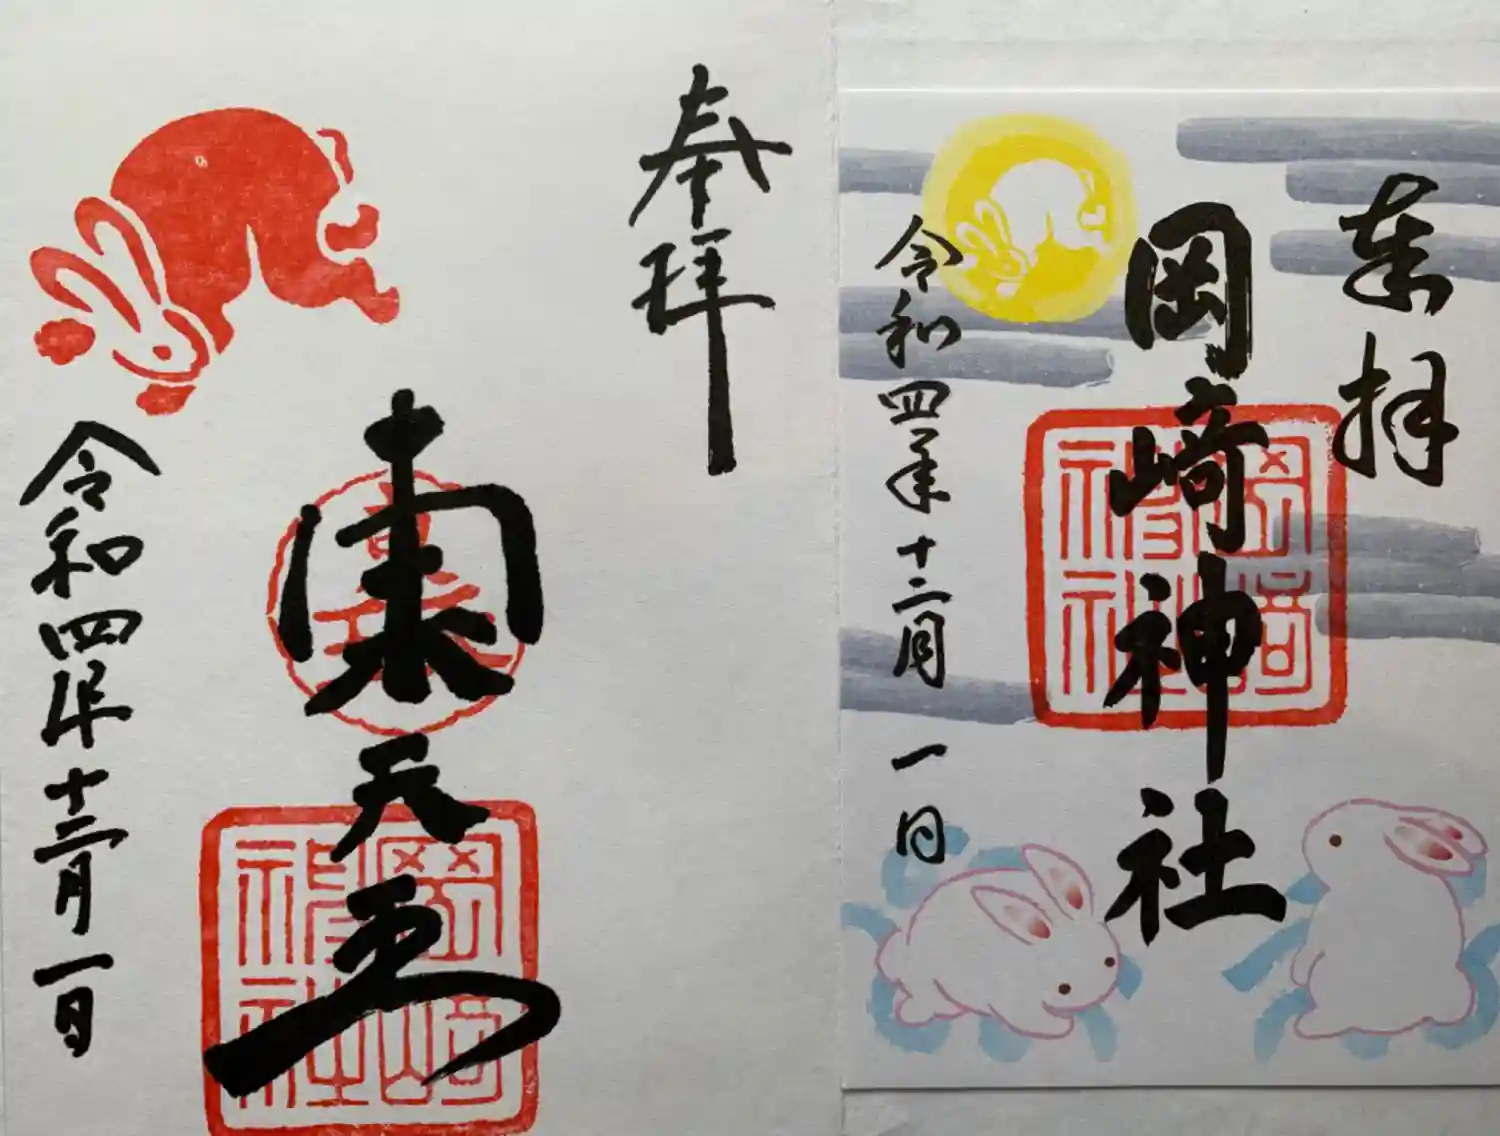 奉拝
岡崎神社
令和四年十二月一日
奉拝
東天王
岡崎神社
令和四年十二月一日
岡崎神社